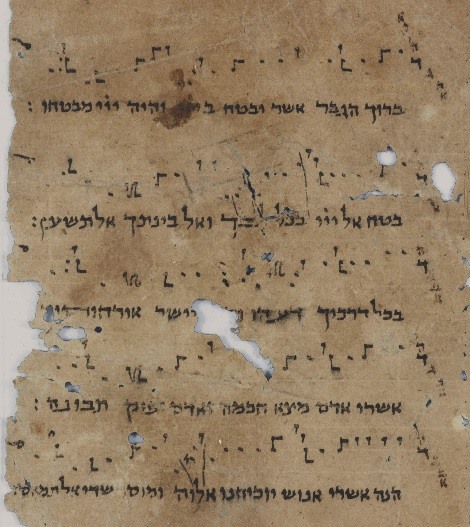 ברוך הגבר אשר יבטח והיה ייי מבטחו :
בטח אל ייי בכל ואל בינתך אל תשען :
בכל דרכיך יישר
אשרי אדם מצא חכמה ואדם יפיק תבונה :
הנה אשרי אנוש יוכיחנו אלוה ומוסר שדי אל תמאס